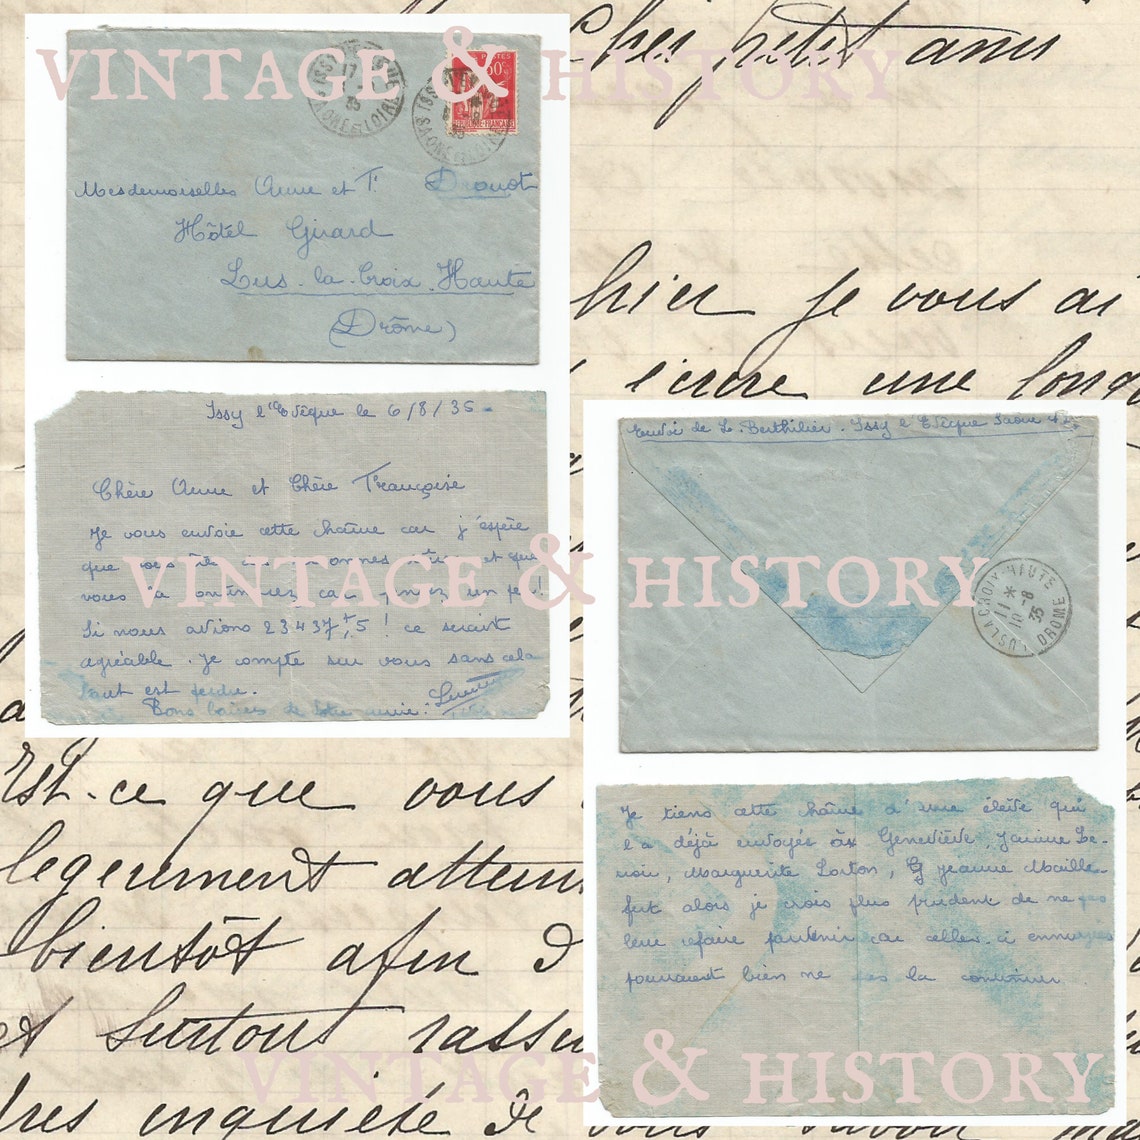 VINTAGE & HISTORY
Mesdemoiselles Anne et F. Drouot
Hôtel Girard
Lus-la-Croix-Haute
(Drôme)
Issy l'Evêque le 6/8/35-
Chère Anne et Chère Françoise
Je vous envoie cette chaîne car j'espère
que vous et que
vous la continuez car un peu!
Si nous avions 23437,5! ce serait
agréable. Je compte sur vous sans cela
tout est perdu.
Bons baisers de votre amie
Cher petit ami
hier je vous ai
écrire une long
Envoi de L. Berthilier. Issy l'Evêque Saône et L.
VINTAGE & HISTORY
LUS LA CROIX-HAUTE
11 *
10-8
35
DROME
Je tiens cette chaîne d'une élève qui
l'a déjà envoyés Geneviève, Janine Le-
noir, Marguerite Lorton, Jeanne Maille-
fert alors je crois plus prudent de ne pas
leur refaire parvenir car celles-ci ennuyées
pourraient bien ne pas la continuer.
Est-ce que vous
legerement atten
bientôt afin d
et surtout rassu
VINTAGE & HISTORY
inquiète de vous savoir